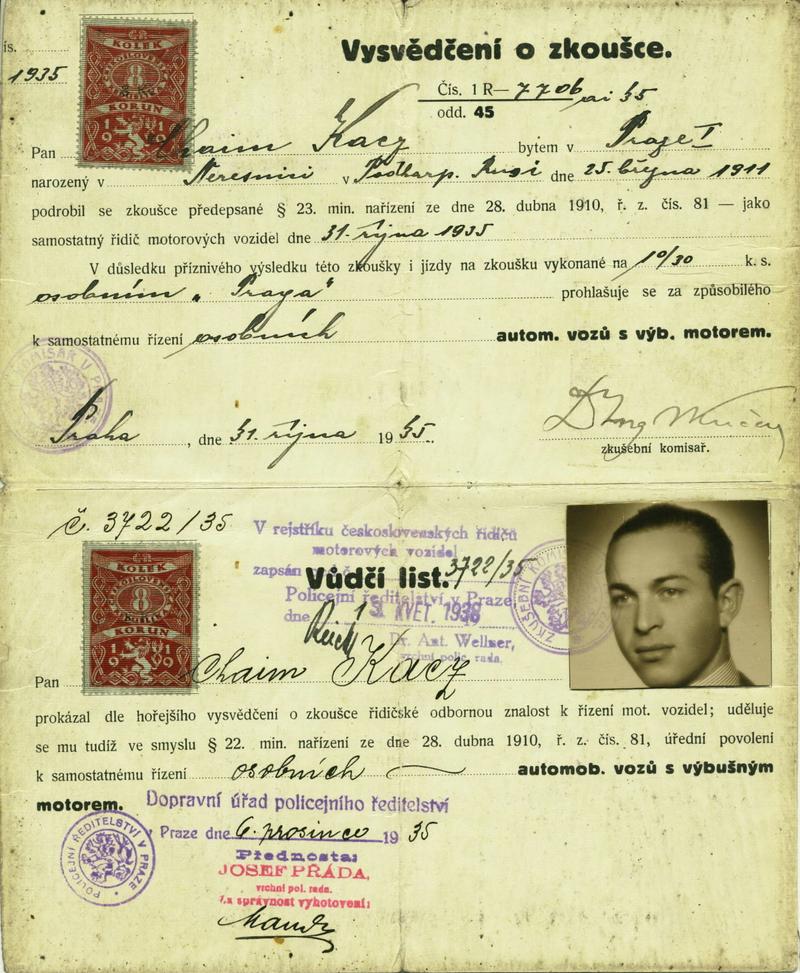 Vysvědčení o zkoušce.
čís.
1935
KOLEK
8
KORUN
1919
Čís. 1 R— 7706 ai 35
odd. 45
Pan Chaim Kacz bytem v Praze I
narozený v Neresnici v Podkarp. Rusi dne 25. března 1911
podrobil se zkoušce předepsané § 23. min. nařízení ze dne 28. dubna 1910, ř. z. čís. 81 — jako
samostatný řidič motorových vozidel dne 31. října 1935
V důsledku příznivého výsledku této zkoušky i jízdy na zkoušku vykonané na 10/30 k. s.
osobním „Praga" prohlašuje se za způsobilého
k samostatnému řízení osobních autom. vozů s výb. motorem.
Praha, dne 31. října 1935.
zkušební komisař.
č. 3722/35
V rejstříku československých řidičů
motorových vozidel
zapsán 3722/35
Vůdčí list.
Policejní ředitelství v Praze
dne 13. KVĚT. 1936
Dr. Ant. Wellner,
vrchní polic. rada.
KOLEK
8
KORUN
1919
Pan Chaim Kacz
prokázal dle hořejšího vysvědčení o zkoušce řidičské odbornou znalost k řízení mot. vozidel; uděluje
se mu tudíž ve smyslu § 22. min. nařízení ze dne 28. dubna 1910, ř. z. čís. 81, úřední povolení
k samostatnému řízení osobních — automob. vozů s výbušným
motorem. Dopravní úřad policejního ředitelství
v Praze dne 6. prosince 1935
POLICEJNÍ ŘEDITELSTVÍ V PRAZE
Přednosta:
JOSEF PŘÁDA,
vrchní pol. rada.
Za správnost vyhotovení: